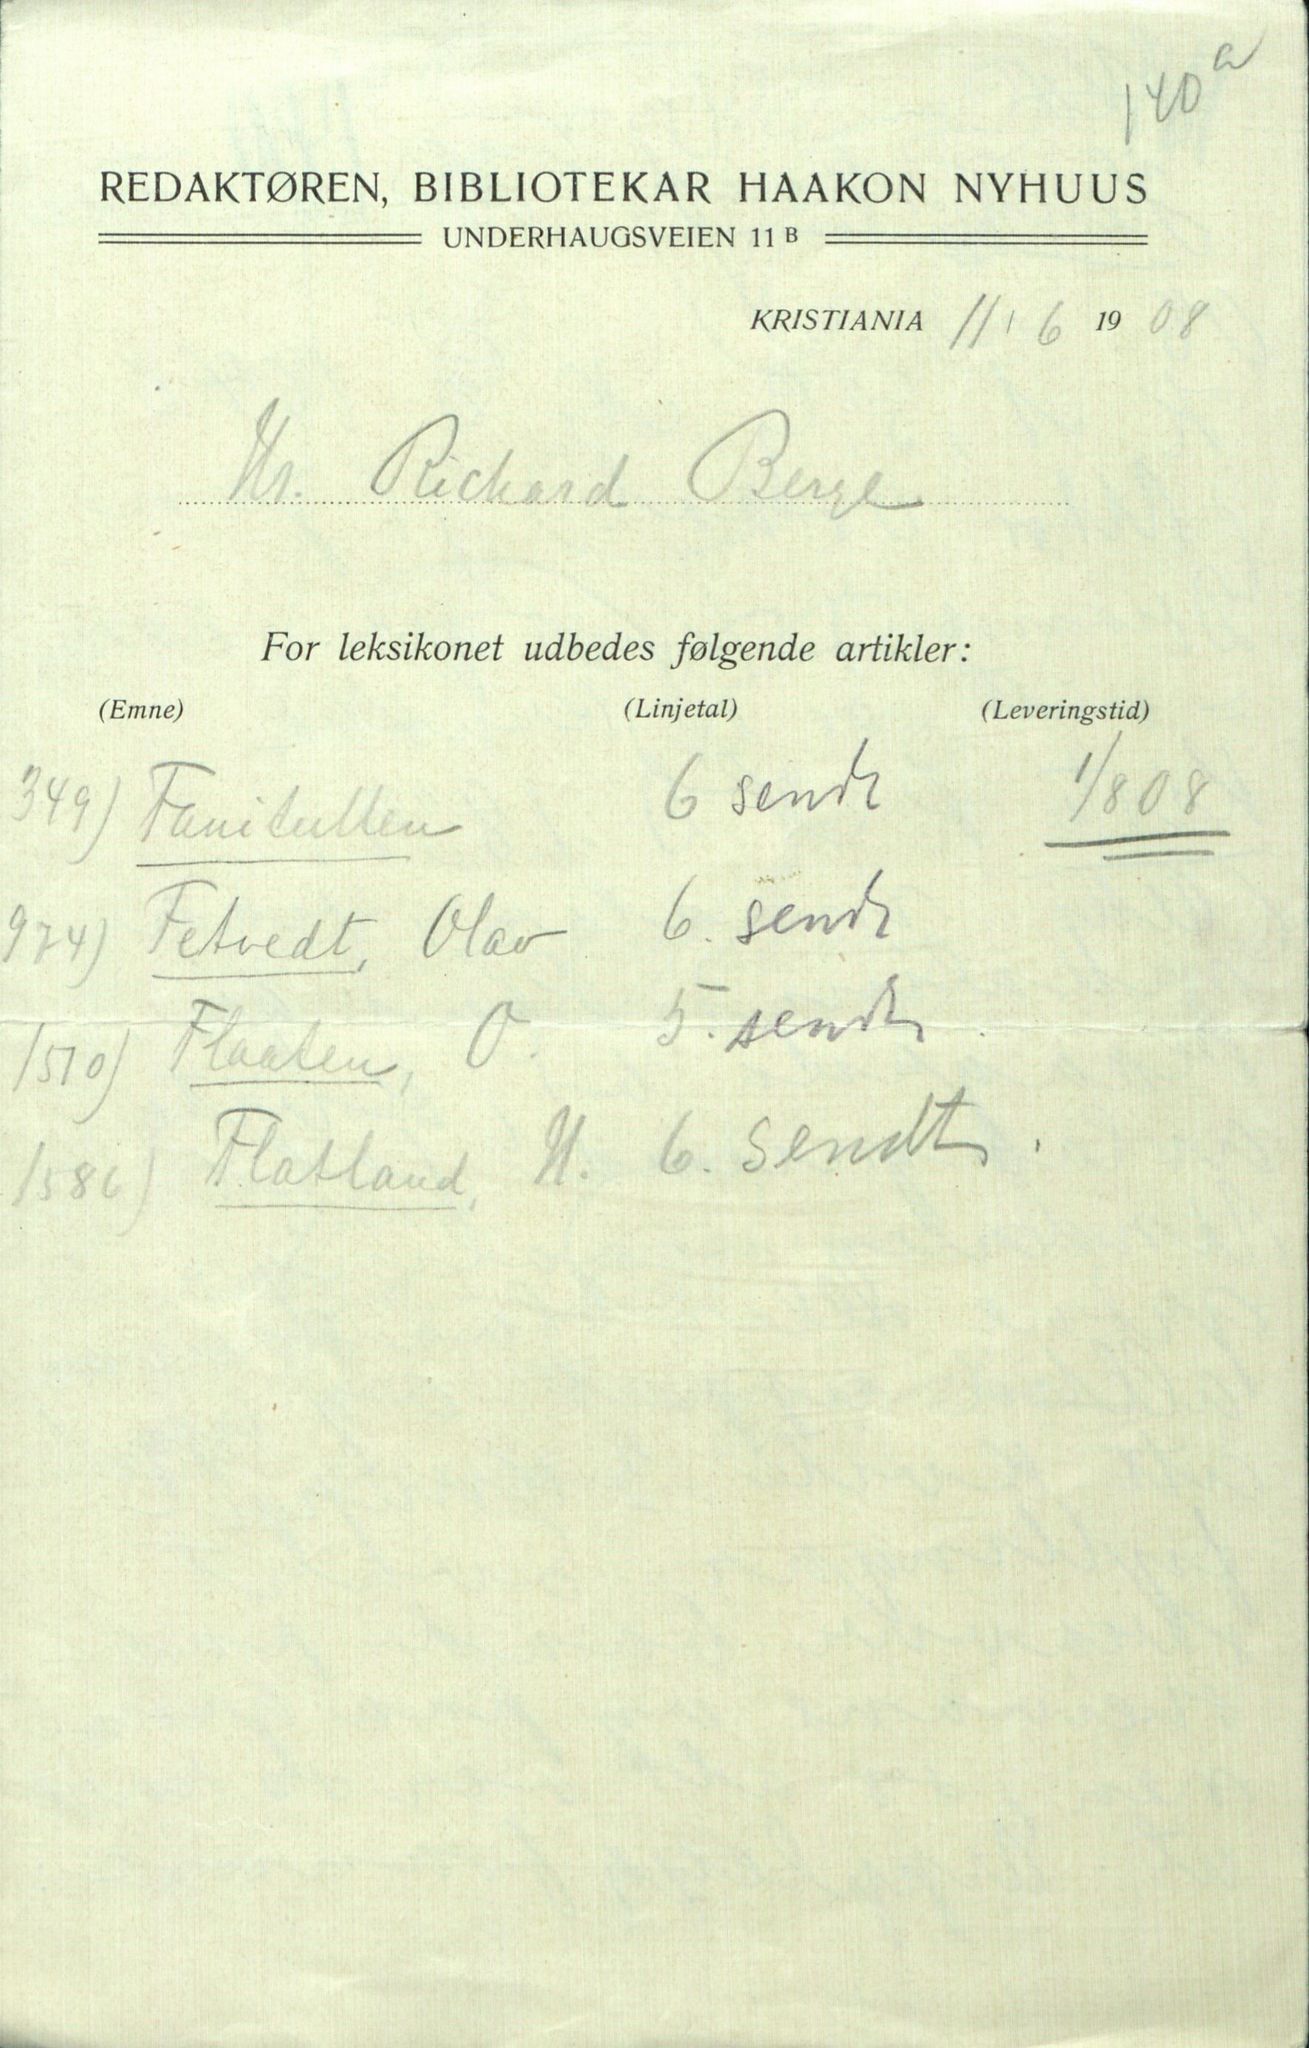 140 a
REDAKTØREN, BIBLIOTEKAR HAAKON NYHUUS
UNDERHAUGSVEIEN 11 B
KRISTIANIA 11/6 1908
Hr. Richard Berge
For leksikonet udbedes følgende artikler:
(Emne) (Linjetal) (Leveringstid)
349) Fanitullen 6 sendt 1/8 08
974) Fetvedt, Olav 6. sendt
1510) Flaaten, O. 5. sendt.
1586) Flatland, H. 6. sendt.